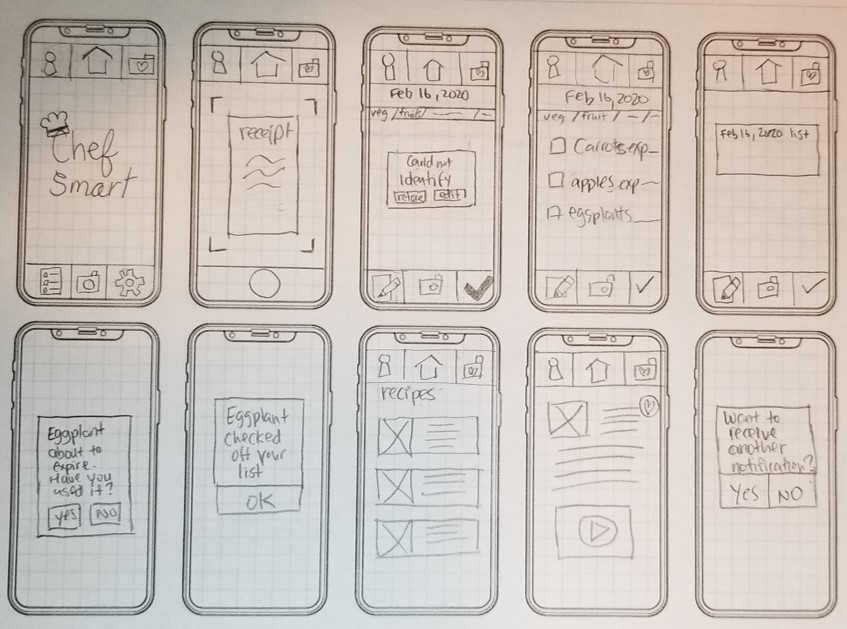 Chef
Smart
receipt
Feb 16, 2020
veg / fruits /
Could not
identify
retake edit
Feb 16, 2020
veg / fruit /
Carrots exp
apples exp
eggplants
Feb 16, 2020 list
Eggplant
about to
expire.
Have you
used it?
yes NO
Eggplant
checked
off your
list
OK
recipes
Want to
receive
another
notification?
Yes NO